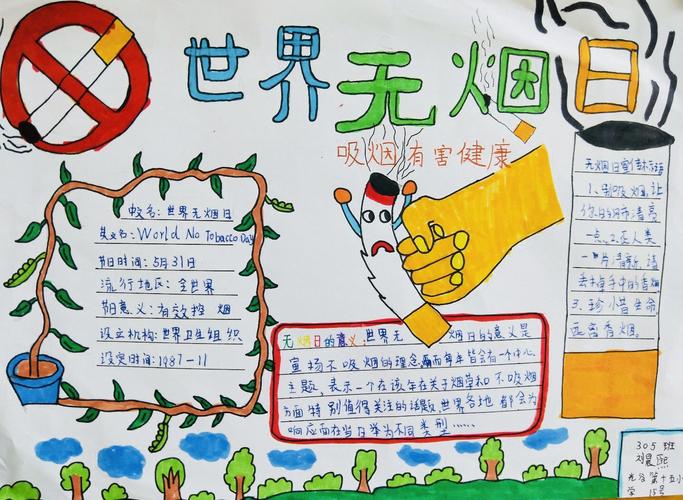 世界无烟日
吸烟有害健康
名:世界无烟日
英文名:World No Tobacco Day
节日时间:5月31日
流行地区:全世界
节日意义:有效控烟
设立机构:世界卫生组织
设定时间:1987-11
无烟日的意义,世界无 烟日的意义是
宣扬不吸烟的理念,而每年皆会有一个中心
主题,表示一个在该年在关于烟草和不吸烟
方面特别值得关注的话题,世界各地都会为
响应而在当日举为不同类型……
无烟日宣传标语
1、别吸烟,让
你的肺清亮
一点,2.还人类
一片清新,请
丢掉手中的香烟
3.珍惜生命
远离香烟。
305班
刘晨熙
光谷第十五小
学 15号